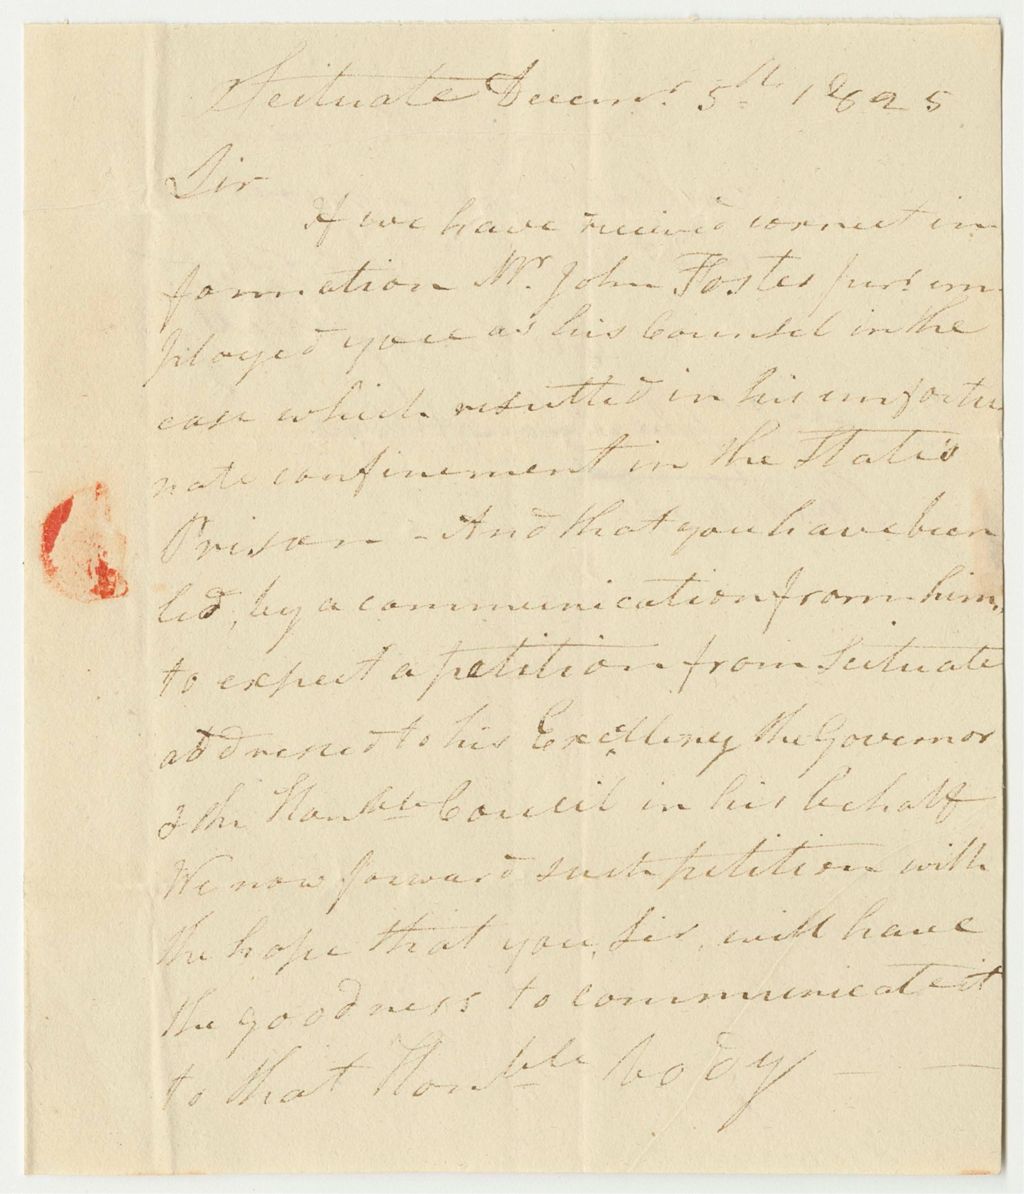 Scituate Decemr. 5th 1825
Sir
If we have receivd correct in-
formation Mr. John Foster junr. im-
ployed you as his Counsel in the
case which resulted in his unfortu
nate confinement in the State's
Prison - And that you have been
led, by a communication from him,
to expect a petition from Scituate
addressed to his Excelleny the Governor
& the Honble Council in his behalf
We now forward such petition with
the hope that you, Sir, will have
the goodness to communicate it
to that Honble body — —